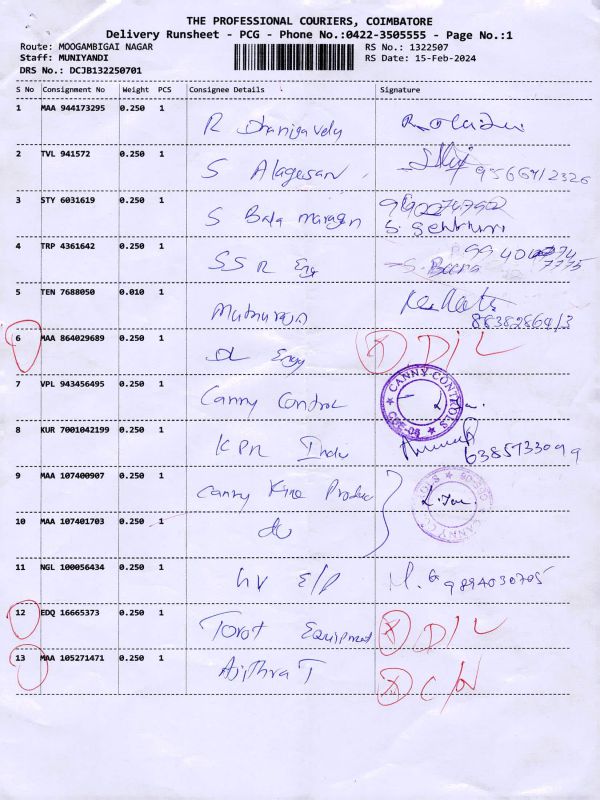 THE PROFESSIONAL COURIERS, COIMBATORE
Delivery Runsheet - PCG - Phone No.:0422-3505555 - Page No.:1
Route: MOOGAMBIGAI NAGAR RS No.: 1322507
Staff: MUNIYANDI RS Date: 15-Feb-2024
DRS No.: DCJB132250701
S No Consignment No Weight PCS Consignee Details Signature
1 MAA 944173295 0.250 1 R
2 TVL 941572 0.250 1 S Alagesan
3 STY 6031619 0.250 1 S Bala muragan
S. Senthuri
4 TRP 4361642 0.250 1 S S R Eng
5 TEN 7688050 0.010 1
6 MAA 864029689 0.250 1 DL Engg X D/L
7 VPL 943456495 0.250 1 Canny Control CANNY CONTROLS CBE-06
8 KUR 7001042199 0.250 1 KPR Indu
6385733099
9 MAA 107400907 0.250 1 Canny Fine Produc
10 MAA 107401703 0.250 1 do
11 NGL 100056434 0.250 1 HV E/P M. G 9894030705
12 EDQ 16665373 0.250 1 Torot Equipment X D/L
13 MAA 105271471 0.250 1 Ajithra T X C/N